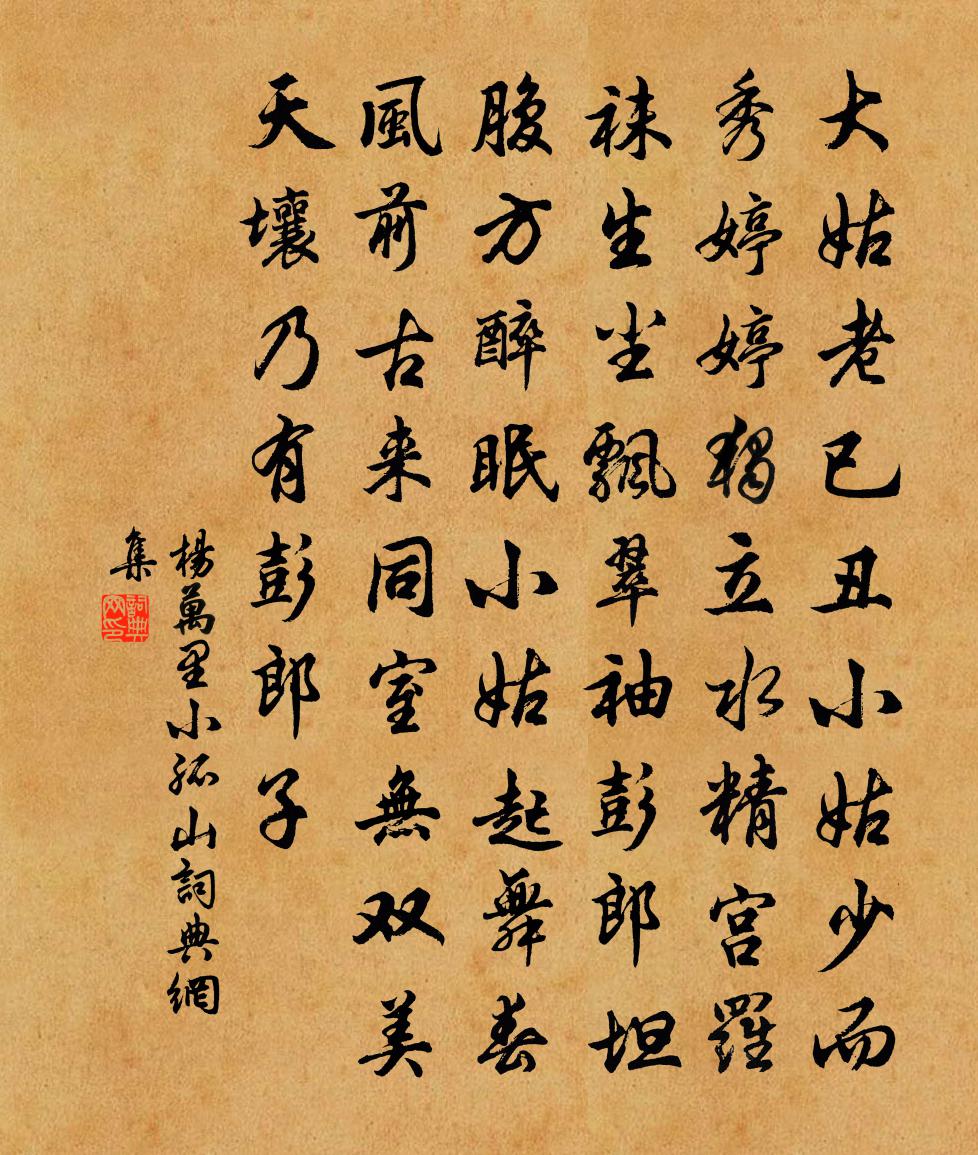 大姑老已丑小姑少而
秀婷婷獨立水精宫羅
袜生尘飄翠袖彭郎坦
腹方醉眠小姑起舞春
風前古来同室無双美
天壤乃有彭郎子
楊萬里小孤山詞典網
集
詞典
网印